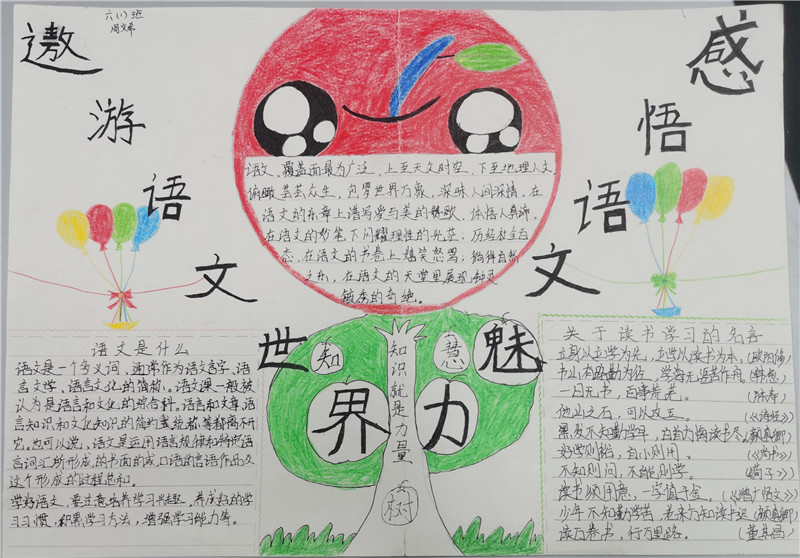 六(1)班
周文希
遨游语文世界
感悟语文魅力
语文，覆盖面最为广泛，上至天文时空，下至地理人文，
俯瞰芸芸众生，包罗世界万象，深味人间深情，在
语文的乐章上谱写爱与美的赞歌，体悟人真谛，
在语文的教笔下闪耀理性的光芒；历经社会百
态，在语文的书卷上嬉笑怒骂；徜徉自然
之和，在语文的天堂里展现钟灵
毓秀的奇绝。
语文是什么
语文是一个多义词，通常作为语言文字、语
言文学、语言文化的简称。语文课一般被
认为是语言和文化的综合科。语言和文章、语
言知识和文化知识的简约式统称等都离不开
它。也可以说，语文是运用语言规律与特定语
言词汇所形成的书面的或口语的言语作品及
这个形成的过程总和。
学好语文，要注意培养学习兴趣。养成好的学
习习惯，积累学习方法，增强学习能力等。
知
慧
知识就是力量
树
关于读书学习的名言
立身以立学为先，立学以读书为本。(欧阳修)
书山有路勤为径，学海无涯苦作舟。(韩愈)
一日无书，百事荒芜。(陈寿)
他山之石，可以攻玉。(《诗经》)
黑发不知勤学早，白首方悔读书迟。(颜真卿)
好学则裕，自小则用。(《尚书》)
不知则问，不能则学。(荀子)
读书须用意，一字值千金。(《增广贤文》)
少年不知勤学苦，老来方知读书迟。(颜真卿)
读万卷书，行万里路。(董其昌)